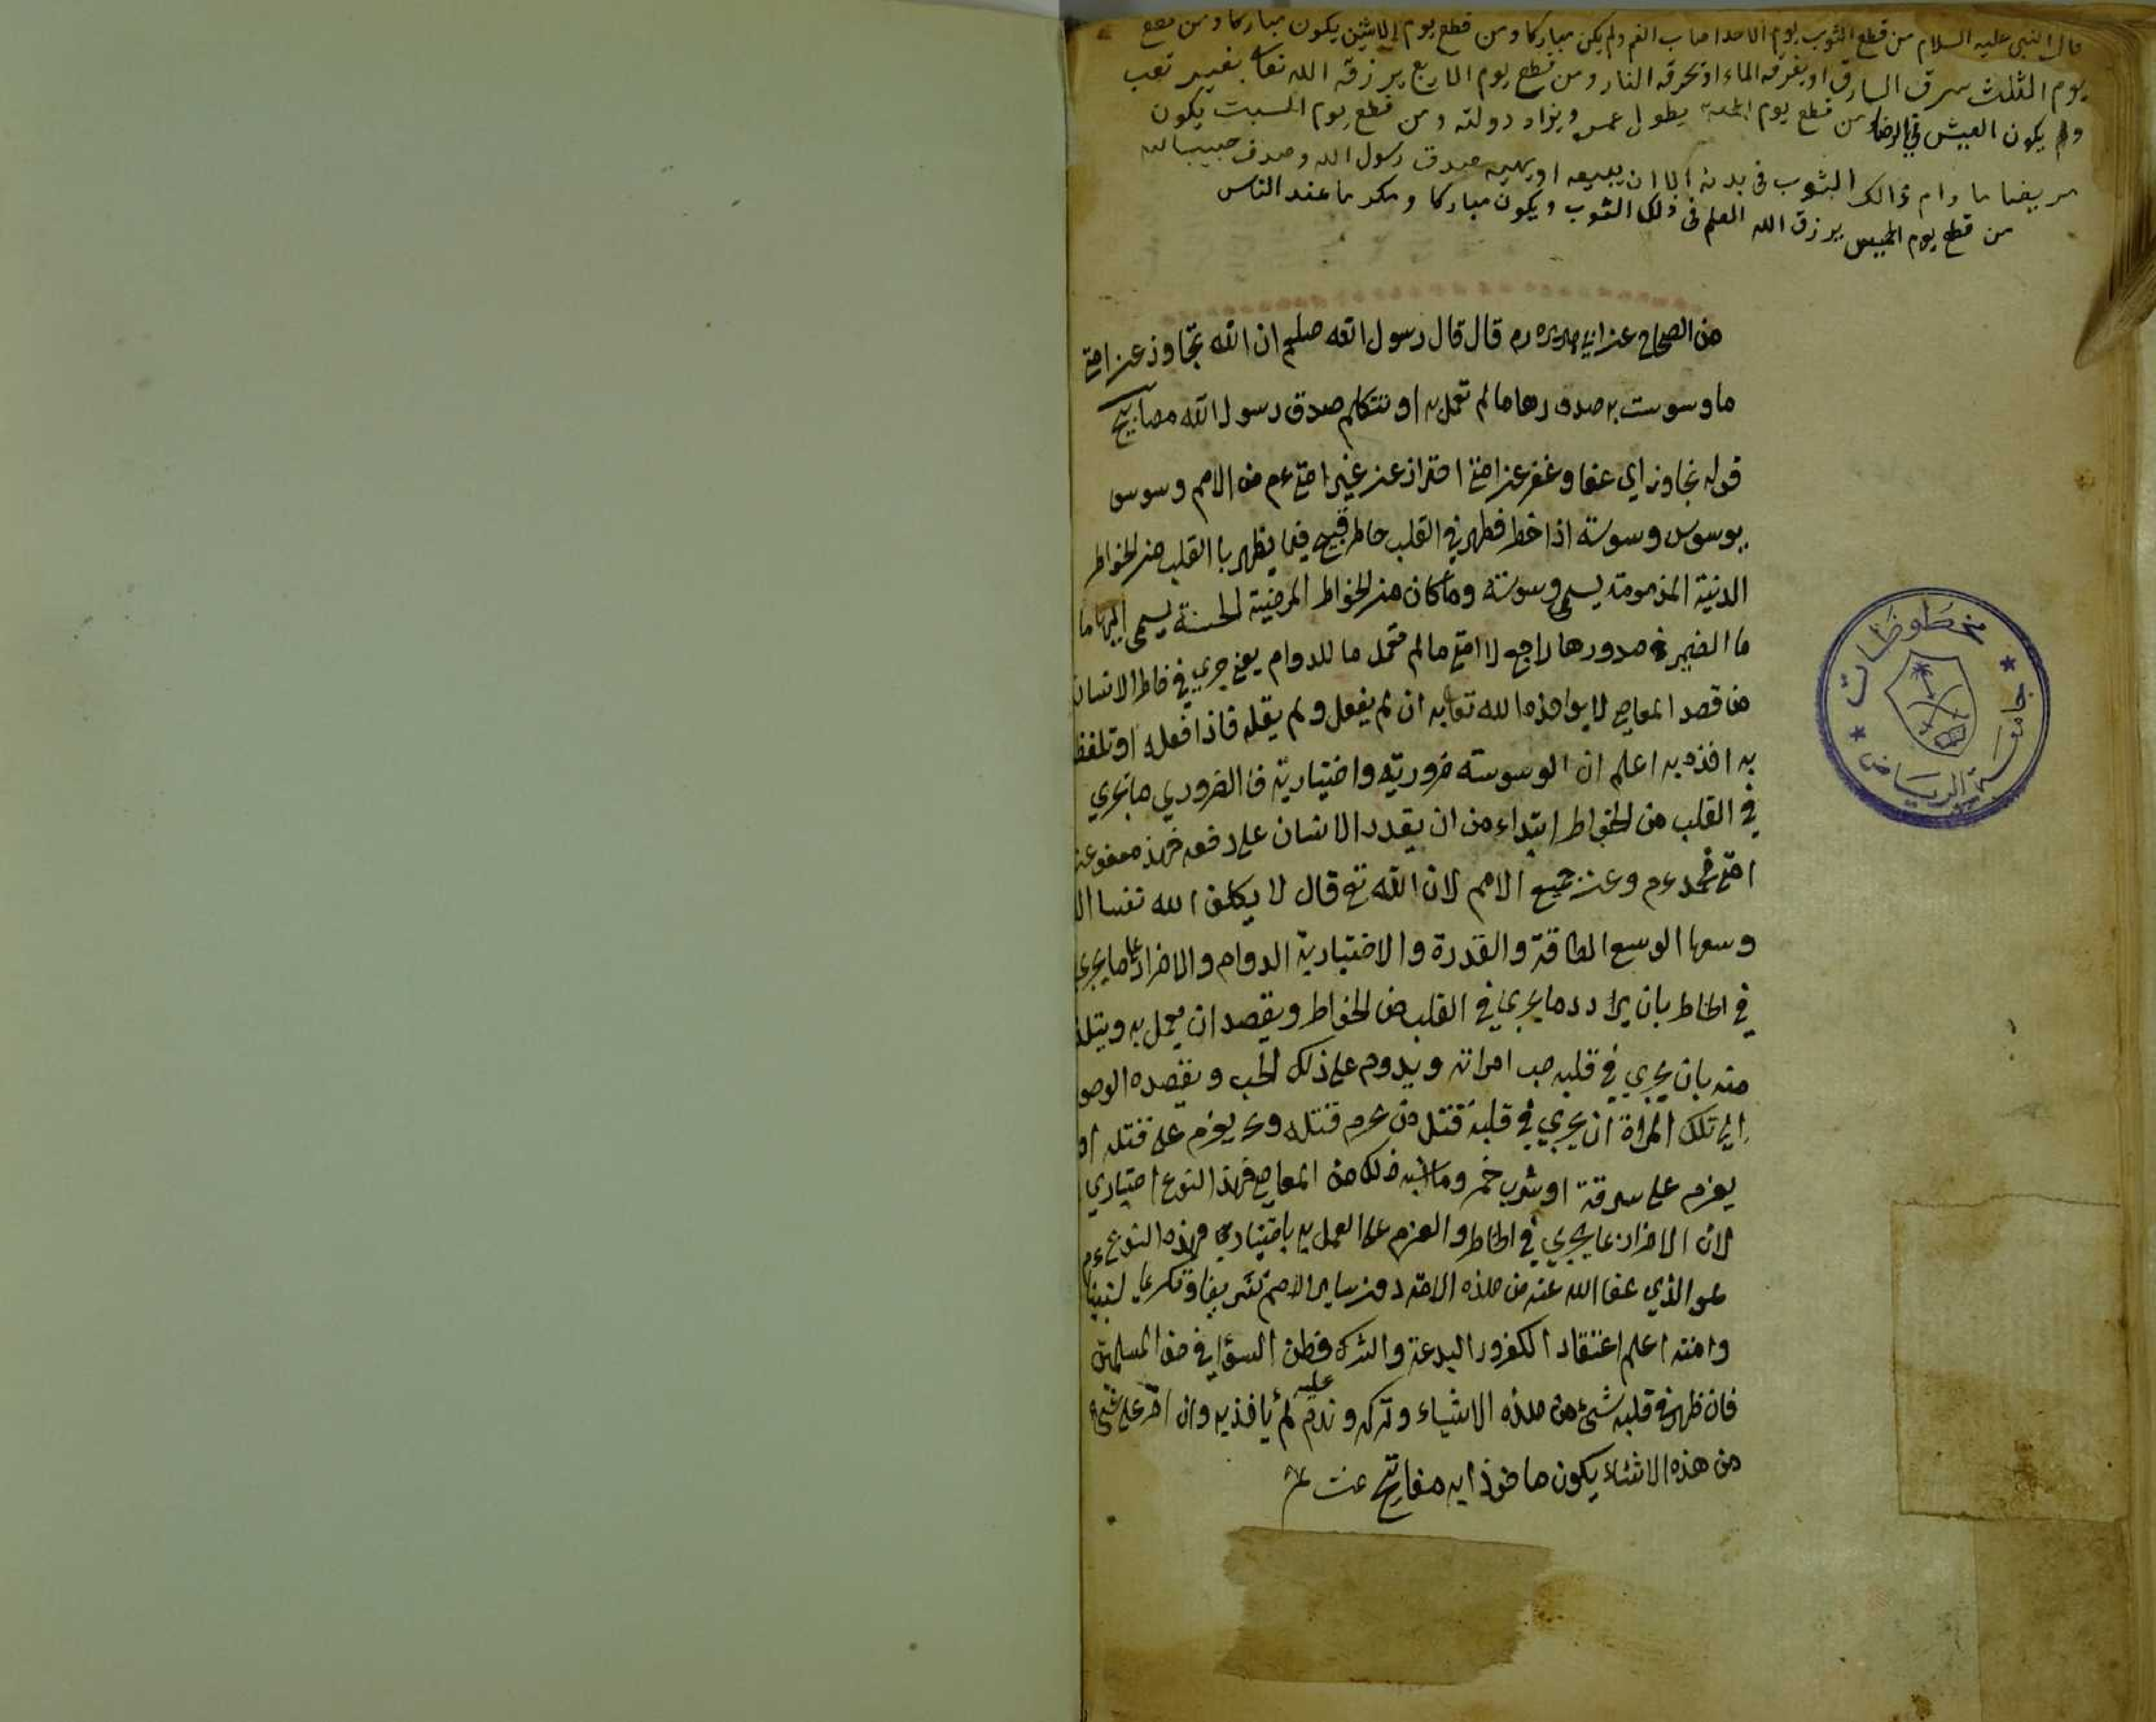 قال النبي عليه السلام من قطع الثوب يوم الاحد اصاب الغم ولم يكن مباركا ومن قطع يوم الاثنين يكون مباركا ومن قطع
يوم الثلث سرق السارق او يغرقه الماء او تحرقه النار ومن قطع يوم الاربع يرزقه الله تعالى بغير تعب
ولم يكون العيش في الرضاء من قطع يوم الجمعة يطول عمره ويزاد دولته ومن قطع يوم السبت يكون
مريضا ما دام ذالك الثوب في بدنه الا ان يبيعه او يهبه صدق رسول الله وصدق حبيب الله
من قطع يوم الخميس يرزق الله العلم في ذلك الثوب ويكون مباركا ومكرما عند الناس
من الصحاح عن ابي هريره رم قال قال رسول الله صلعم ان الله تجاوز عن امتي
ما وسوست به صدورها ما لم تعمل به او تتكلم صدق رسول الله مصابيح
قوله تجاوز اي عفا وغفر عن امتي احتراز عن غير امتي عم من الامم وسوس
يوسوس وسوسة اذا خطر فظهر في القلب خاطر قبيح فيما يظهر بالقلب من الخواطر
الدنية المذمومة يسمى وسوسة وما كان من الخواطر المرضية الحسنة يسمى الهاما
ما الضمير في صدورها راجع لا امتي ما لم تعمل ما للدوام يعني جري في خاطر الانسان
من قصد المعاصي لا يواخذه الله تعالى به ان لم يفعل ولم يقله فاذا فعله او تلفظ
به اخذه به اعلم ان الوسوسة ضرورية واختيارية فالضروري ما تجري
في القلب من الخواطر ابتداء من ان يقدر الانسان على دفعه فهذ معفو عن
امتي محمد عم وعن جميع الامم لان الله تع قال لا يكلف الله نفسا الا
وسعها الوسع الطاقة والقدرة والاختيارية الدوام والاصرار على ما يجري
في الخاطر بان يردد ما يجري في القلب من الخواطر ويقصد ان يعمل به ويتلذ
منه بان يجري في قلبه حب امراته ويدوم على ذلك الحب ويقصده الوصو
الي تلك المراة ان يجري في قلبه قتل من يحرم قتله ويعزم على قتله او
يعزم على سرقة او شرب خمر وما اشبه ذلك من المعاصي فهذا النوع اختياري
لان الاصرار عما يجري في الخاطر والعزم على العمل به باختياره فهذه النوع
هو الذي عفا الله عنه من هذه الامة دون ساير الامم تشريفا وتكريما لنبينا عم
وامته اعلم اعتقاد الكفر والبدعة والشرك وظن السؤ في حق المسلمين
فان ظهر في قلبه شئ من هذه الاشياء وتركه وندم عليه لم ياخذ به وان اصر على شئ
من هذه الاشياء يكون ماخوذا به مفاتيح
مخطوطات
جامعة الرياض